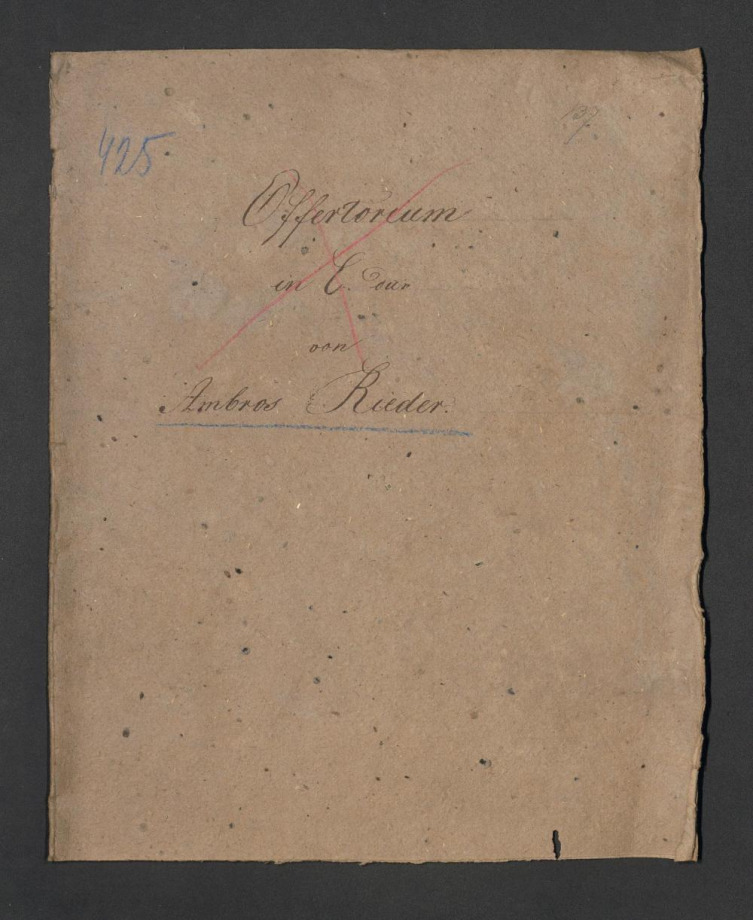 425
137
Offertorium
in C. Dur
von
Ambros Rieder.